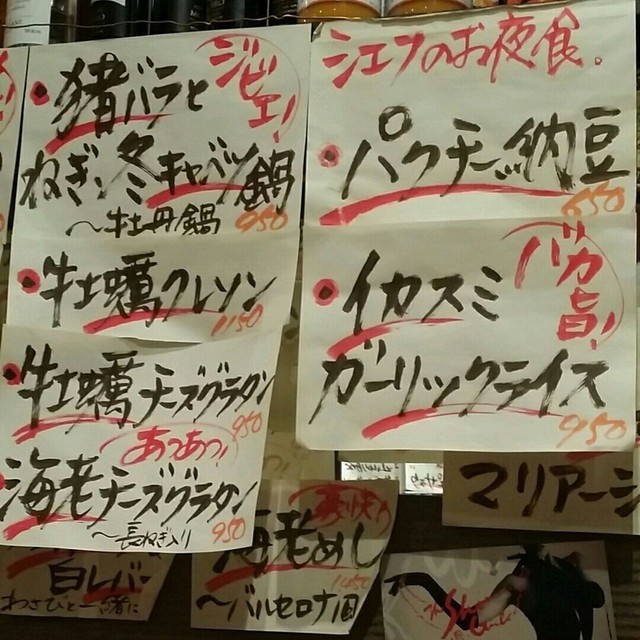 ジビエ!
・猪バラと
ねぎ、冬キャベツ鍋
〜牡丹鍋 950
・牡蠣クレソン
1150
・牡蠣チーズグラタン
950
あつあつ!
・海老チーズグラタン
〜長ねぎ入り 950
シェフのお夜食。
・パクチー納豆
650
バカ旨!
・イカスミ
ガーリックライス
950
白レバー
わさびと一緒に
海老めし
〜バルセロナ
マリアージ